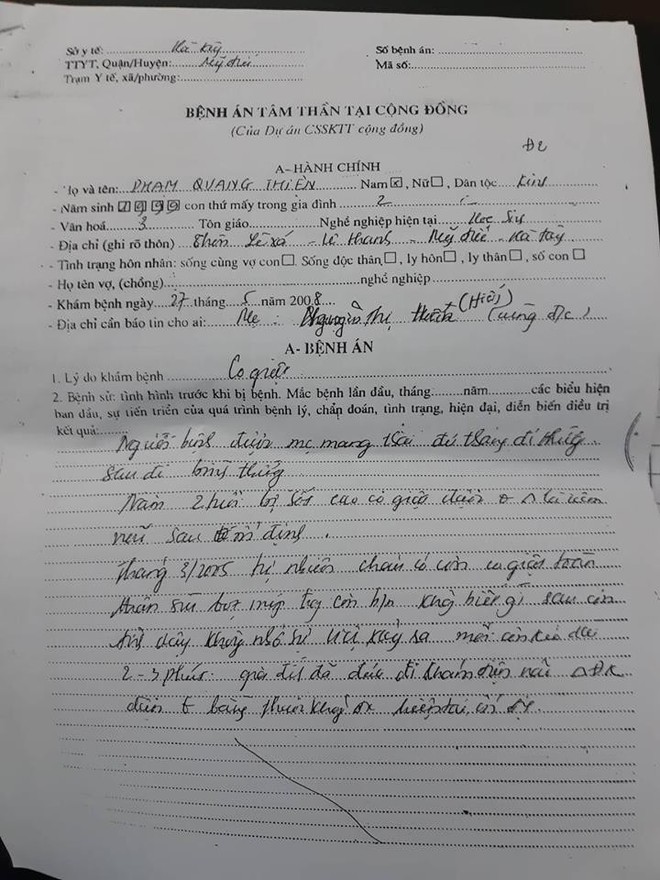 Sở y tế: Hà Tây
Số bệnh án:
TTYT. Quận/Huyện: Mỹ đức
Mã số:
Trạm Y tế, xã/phường:
BỆNH ÁN TÂM THẦN TẠI CỘNG ĐỒNG
(Của Dự án CSSKTT cộng đồng)
A- HÀNH CHÍNH
- Họ và tên: PHAM QUANG THIÊN Nam ☒, Nữ☐, Dân tộc Kinh
- Năm sinh 1999 con thứ mấy trong gia đình 2
- Văn hoá 3 Tôn giáo Nghề nghiệp hiện tại Học Sinh
- Địa chỉ (ghi rõ thôn) Thôn Lê xá - Lê Thanh - Mỹ đức - Hà Tây
- Tình trạng hôn nhân: sống cùng vợ con☐. Sống độc thân☐, ly hôn☐, ly thân☐, số con ☐
- Họ tên vợ, (chồng) nghề nghiệp
- Khám bệnh ngày 27 tháng 5 năm 2008
- Địa chỉ cần báo tin cho ai: Mẹ: Nguyễn Thị (cùng đc)
A- BỆNH ÁN
1. Lý do khám bệnh Co giật
2. Bệnh sử: tình hình trước khi bị bệnh. Mắc bệnh lần đầu, tháng năm các biểu hiện
ban đầu, sự tiến triển của quá trình bệnh lý, chẩn đoán, tình trạng, hiện đại, diễn biến điều trị
kết quả:
Người bệnh được mẹ mang thai đủ tháng đẻ thường
sau đẻ bình thường
Năm 2 tuổi bị sốt cao co giật được là viêm
não sau ổn định.
Tháng 3/2005 tự nhiên cháu có cơn co giật toàn
thân sùi bọt mép không biết gì sau cơn
không nhớ sự việc xảy ra mỗi cơn kéo dài
2-3 phút gia đình đã đưa đi khám điện não
được bằng thuốc hiện tại